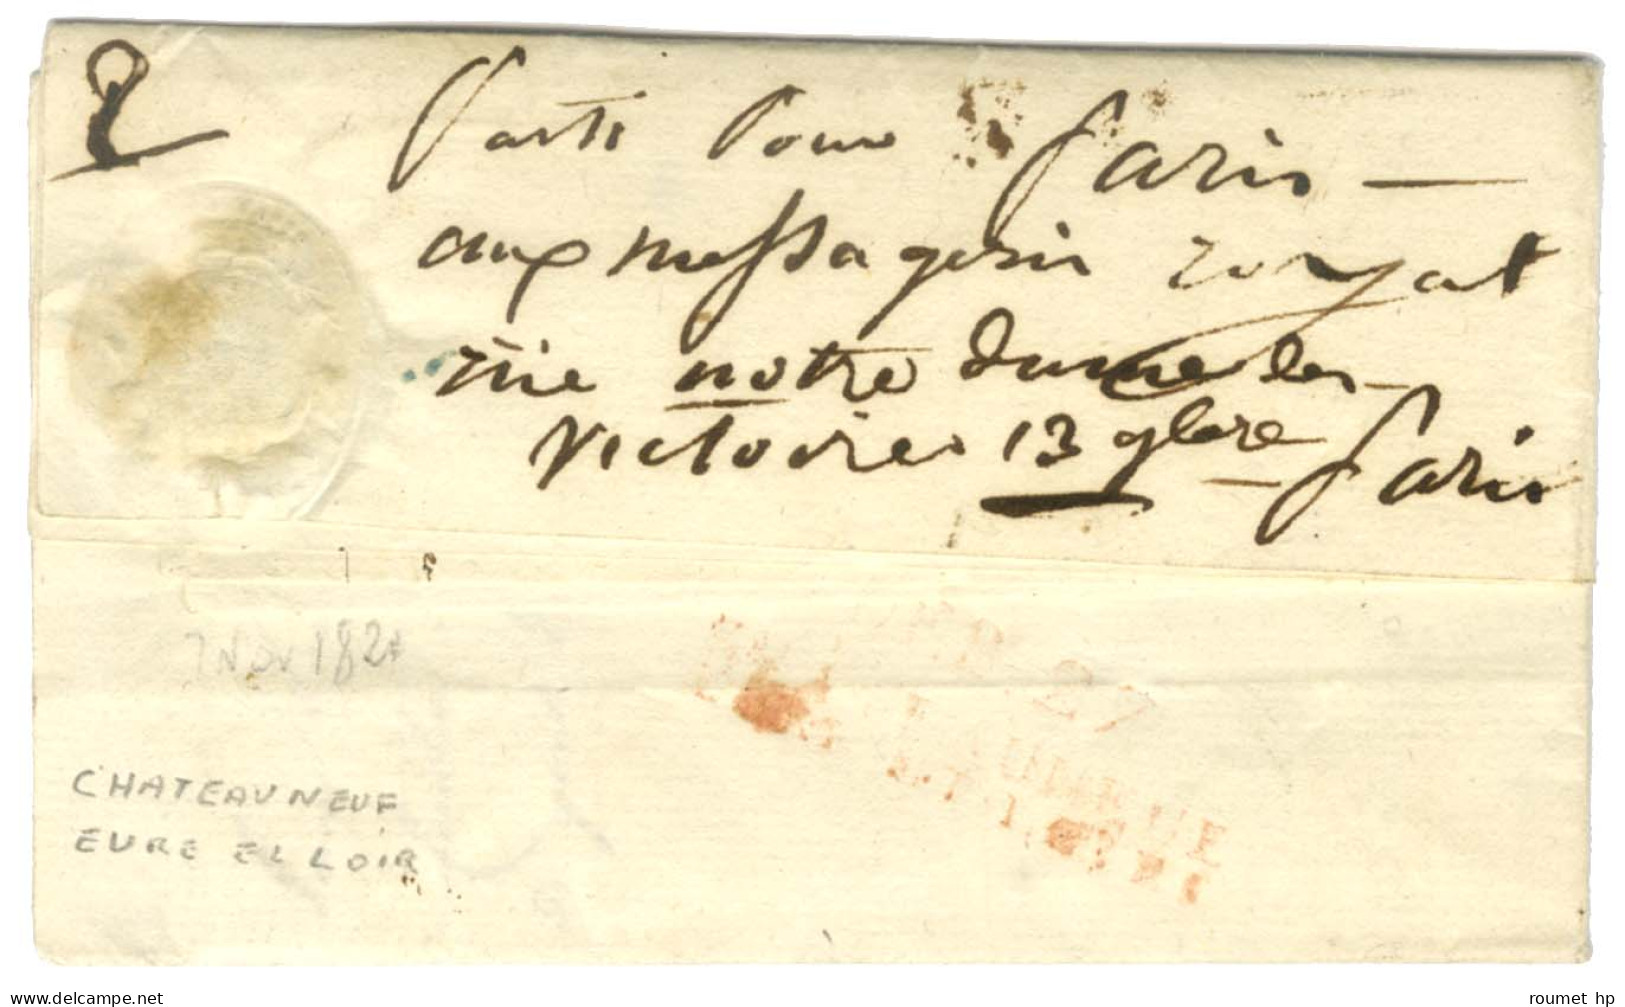 Parti Pour Paris —
aux messagerie royal
rue notre dame des
victoires 13 9bre — Paris
7 Nov 182
CHATEAUNEUF
EURE ET LOIR
27
delcampe.net
roumet hp